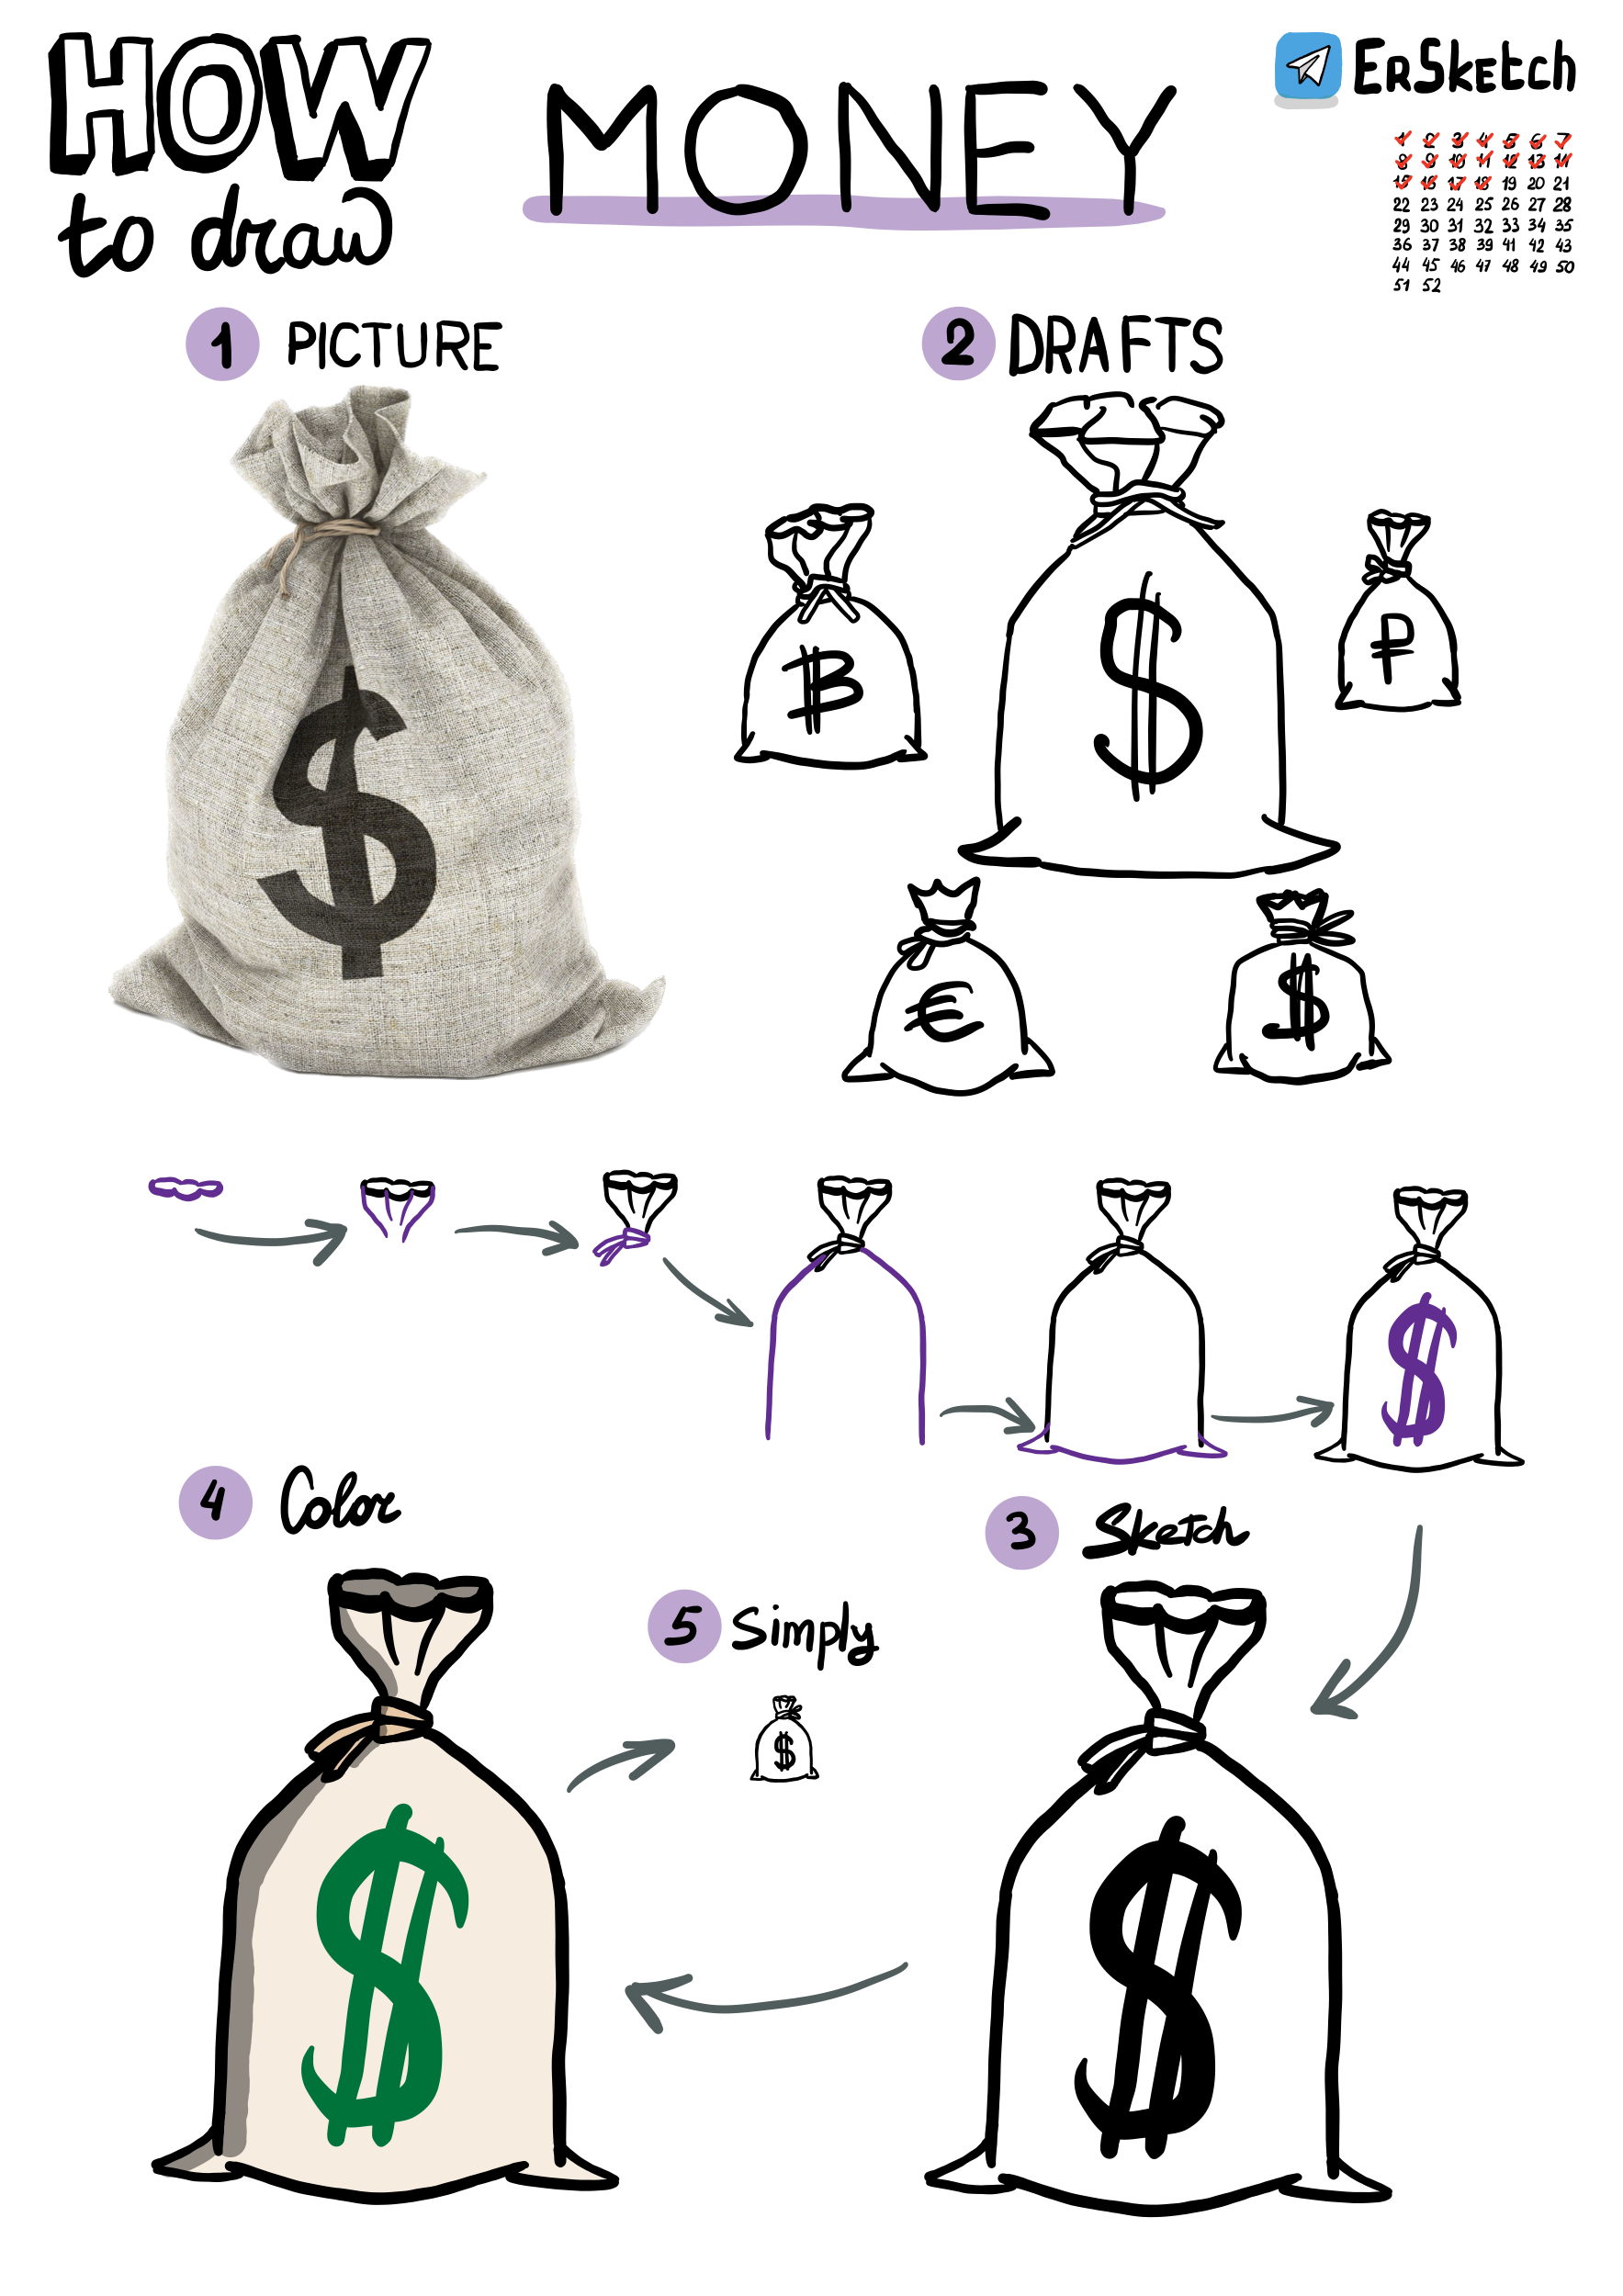 HOW
to draw
MONEY
ErSketch
1 2 3 4 5 6 7
8 9 10 11 12 13 14
15 16 17 18 19 20 21
22 23 24 25 26 27 28
29 30 31 32 33 34 35
36 37 38 39 41 42 43
44 45 46 47 48 49 50
51 52
1 PICTURE
$
2 DRAFTS
฿
$
₽
€
$
$
4 Color
$
5 Simply
$
3 Sketch
$